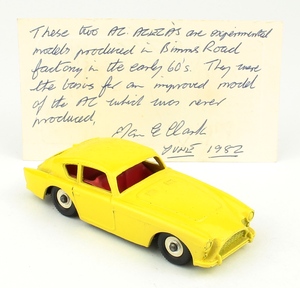 These two AC ACECA's are experimental
models produced in Binns Road
factory in the early 60's. They were
the basis for an improved model
of the AC which was never
produced.
E Clark
JUNE 1982